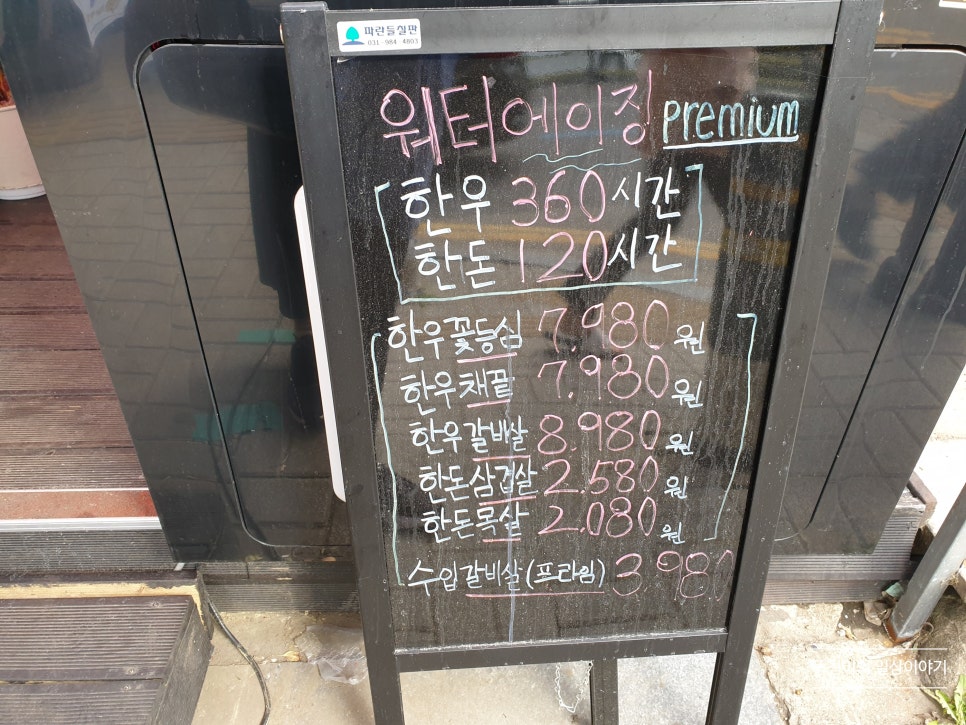 파란들살판
031-984-4803
워터에이징 premium
한우 360시간
한돈 120시간
한우꽃등심 7.980원
한우채끝 7.980원
한우갈비살 8.980원
한돈삼겹살 2.580원
한돈목살 2.080원
수입갈비살(프라임) 3.980